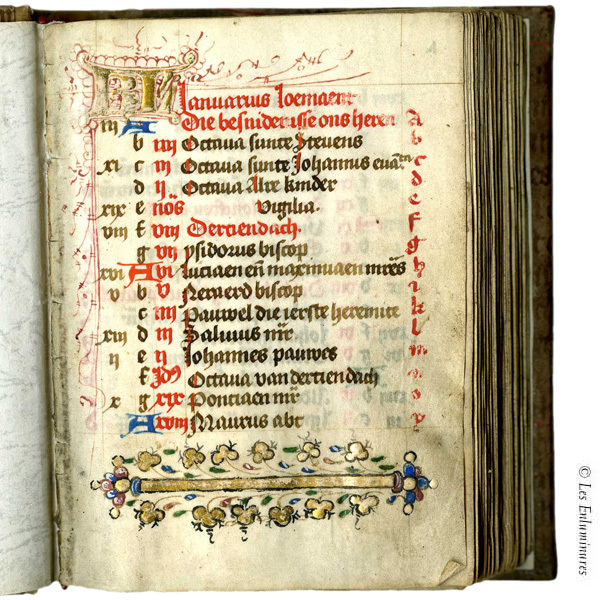 KL
Januarius Loemaent
iii A Die besniderisse ons heren a
b iiii Octava sunte Stevens b
xi c iii Octava sunte Johannus c
d ii Octava Alre kinder d
xix e nōs Vigilia. e
viii f viii Dertiendach. f
g vii ysidorus biscop g
xvi A vi Luciaen eñ maximiaen mr̄es h
v b v biscop i
c iiii Pauwel die ierste heremite k
xiii d iii Salvius mr̄ l
ii e ii Johannes pauwes m
f Octava van dertiendach n
x g xix Pontiaen mr̄ o
A xviii Maurus abt p
© Les Enluminures